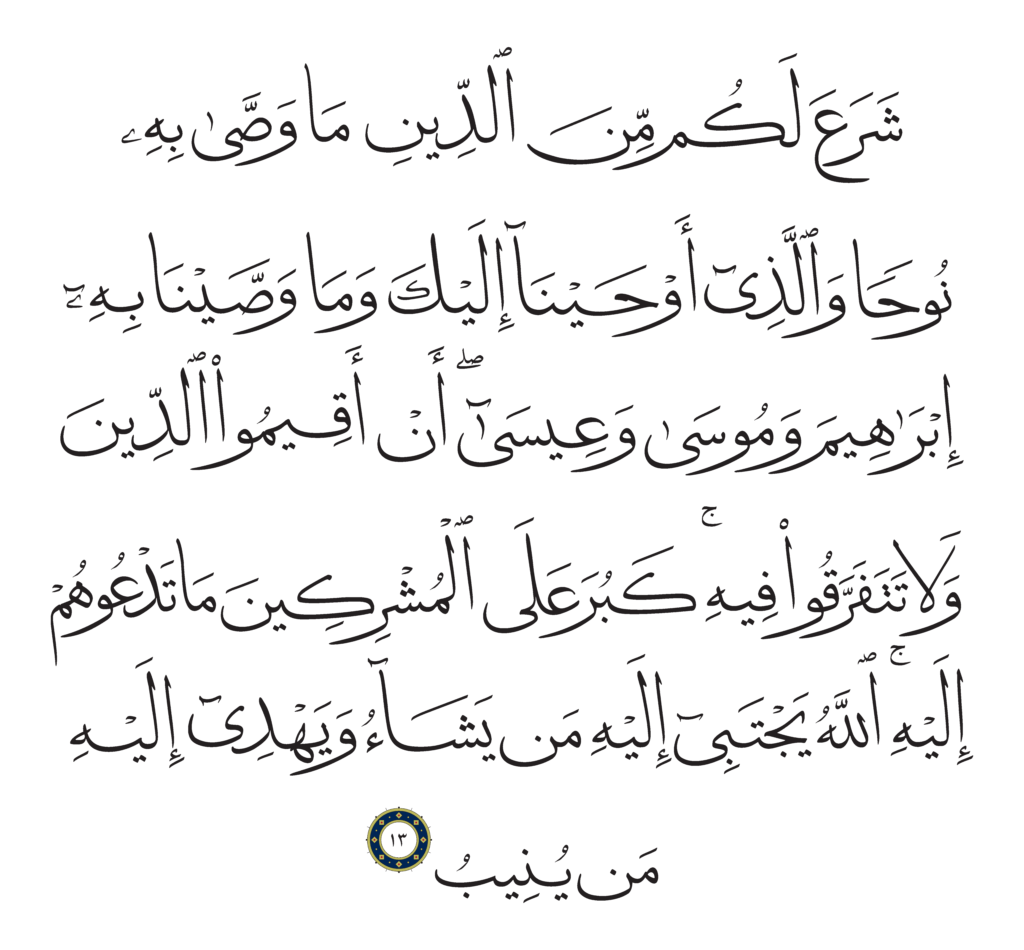 شَرَعَ لَكُم مِّنَ ٱلدِّينِ مَا وَصَّىٰ بِهِۦ
نُوحًا وَٱلَّذِىٓ أَوْحَيْنَآ إِلَيْكَ وَمَا وَصَّيْنَا بِهِۦٓ
إِبْرَٰهِيمَ وَمُوسَىٰ وَعِيسَىٰٓ ۖ أَنْ أَقِيمُوا۟ ٱلدِّينَ
وَلَا تَتَفَرَّقُوا۟ فِيهِ ۚ كَبُرَ عَلَى ٱلْمُشْرِكِينَ مَا تَدْعُوهُمْ
إِلَيْهِ ۚ ٱللَّهُ يَجْتَبِىٓ إِلَيْهِ مَن يَشَآءُ وَيَهْدِىٓ إِلَيْهِ
مَن يُنِيبُ ١٣